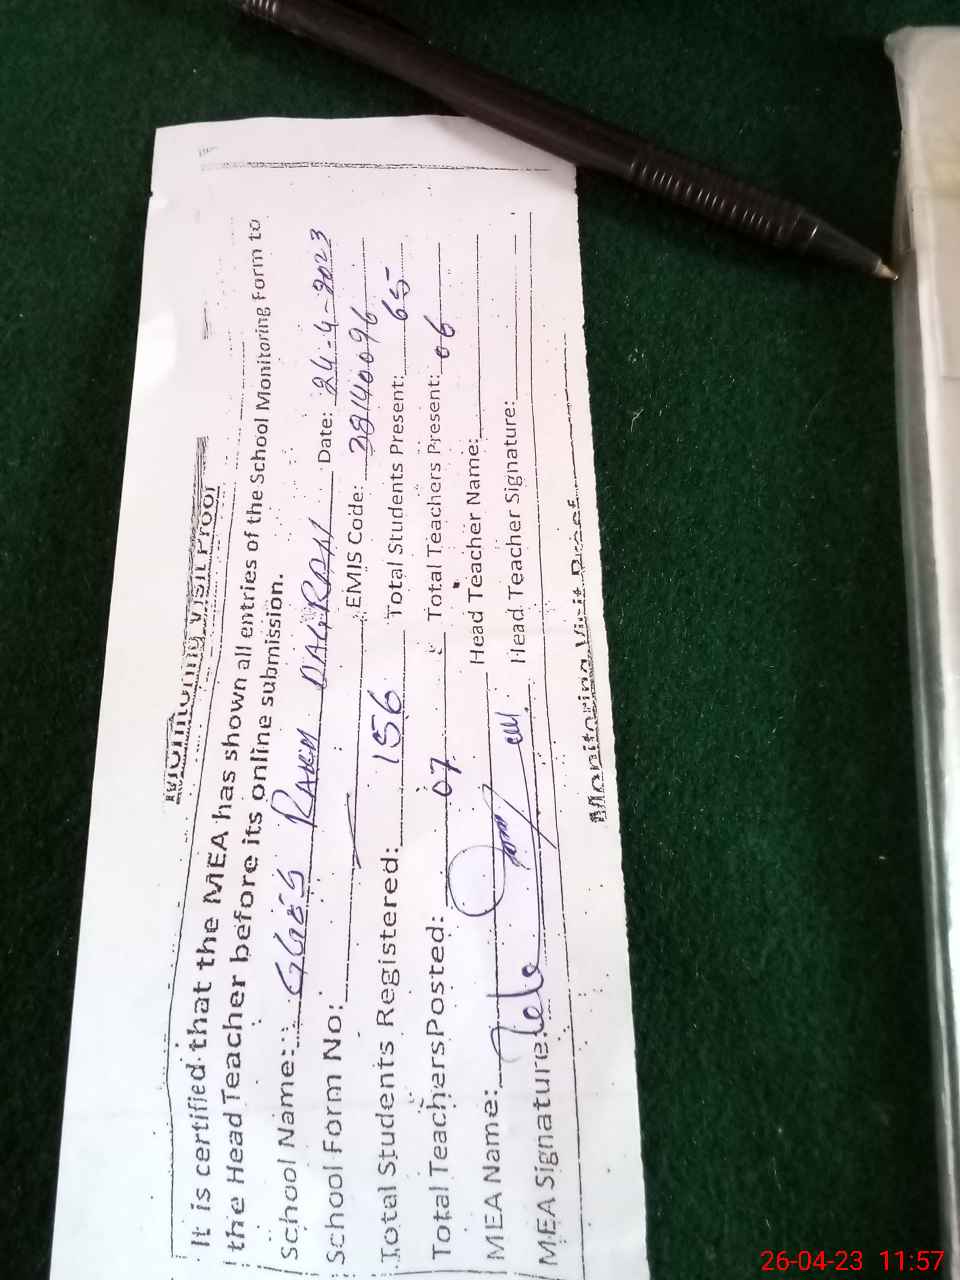 Monitoring Visit Proof
It is certified that the MEA has shown all entries of the School Monitoring Form to
the Head Teacher before its online submission.
School Name: GGES RAKH DAGRAN Date: 24-4-2023
School Form No: EMIS Code: 38140096
Total Students Registered: 156 Total Students Present: 65
Total Teachers Posted: 07 Total Teachers Present: 06
MEA Name: Head Teacher Name:
MEA Signature: Head Teacher Signature:
Monitoring Visit Proof
26-04-23 11:57